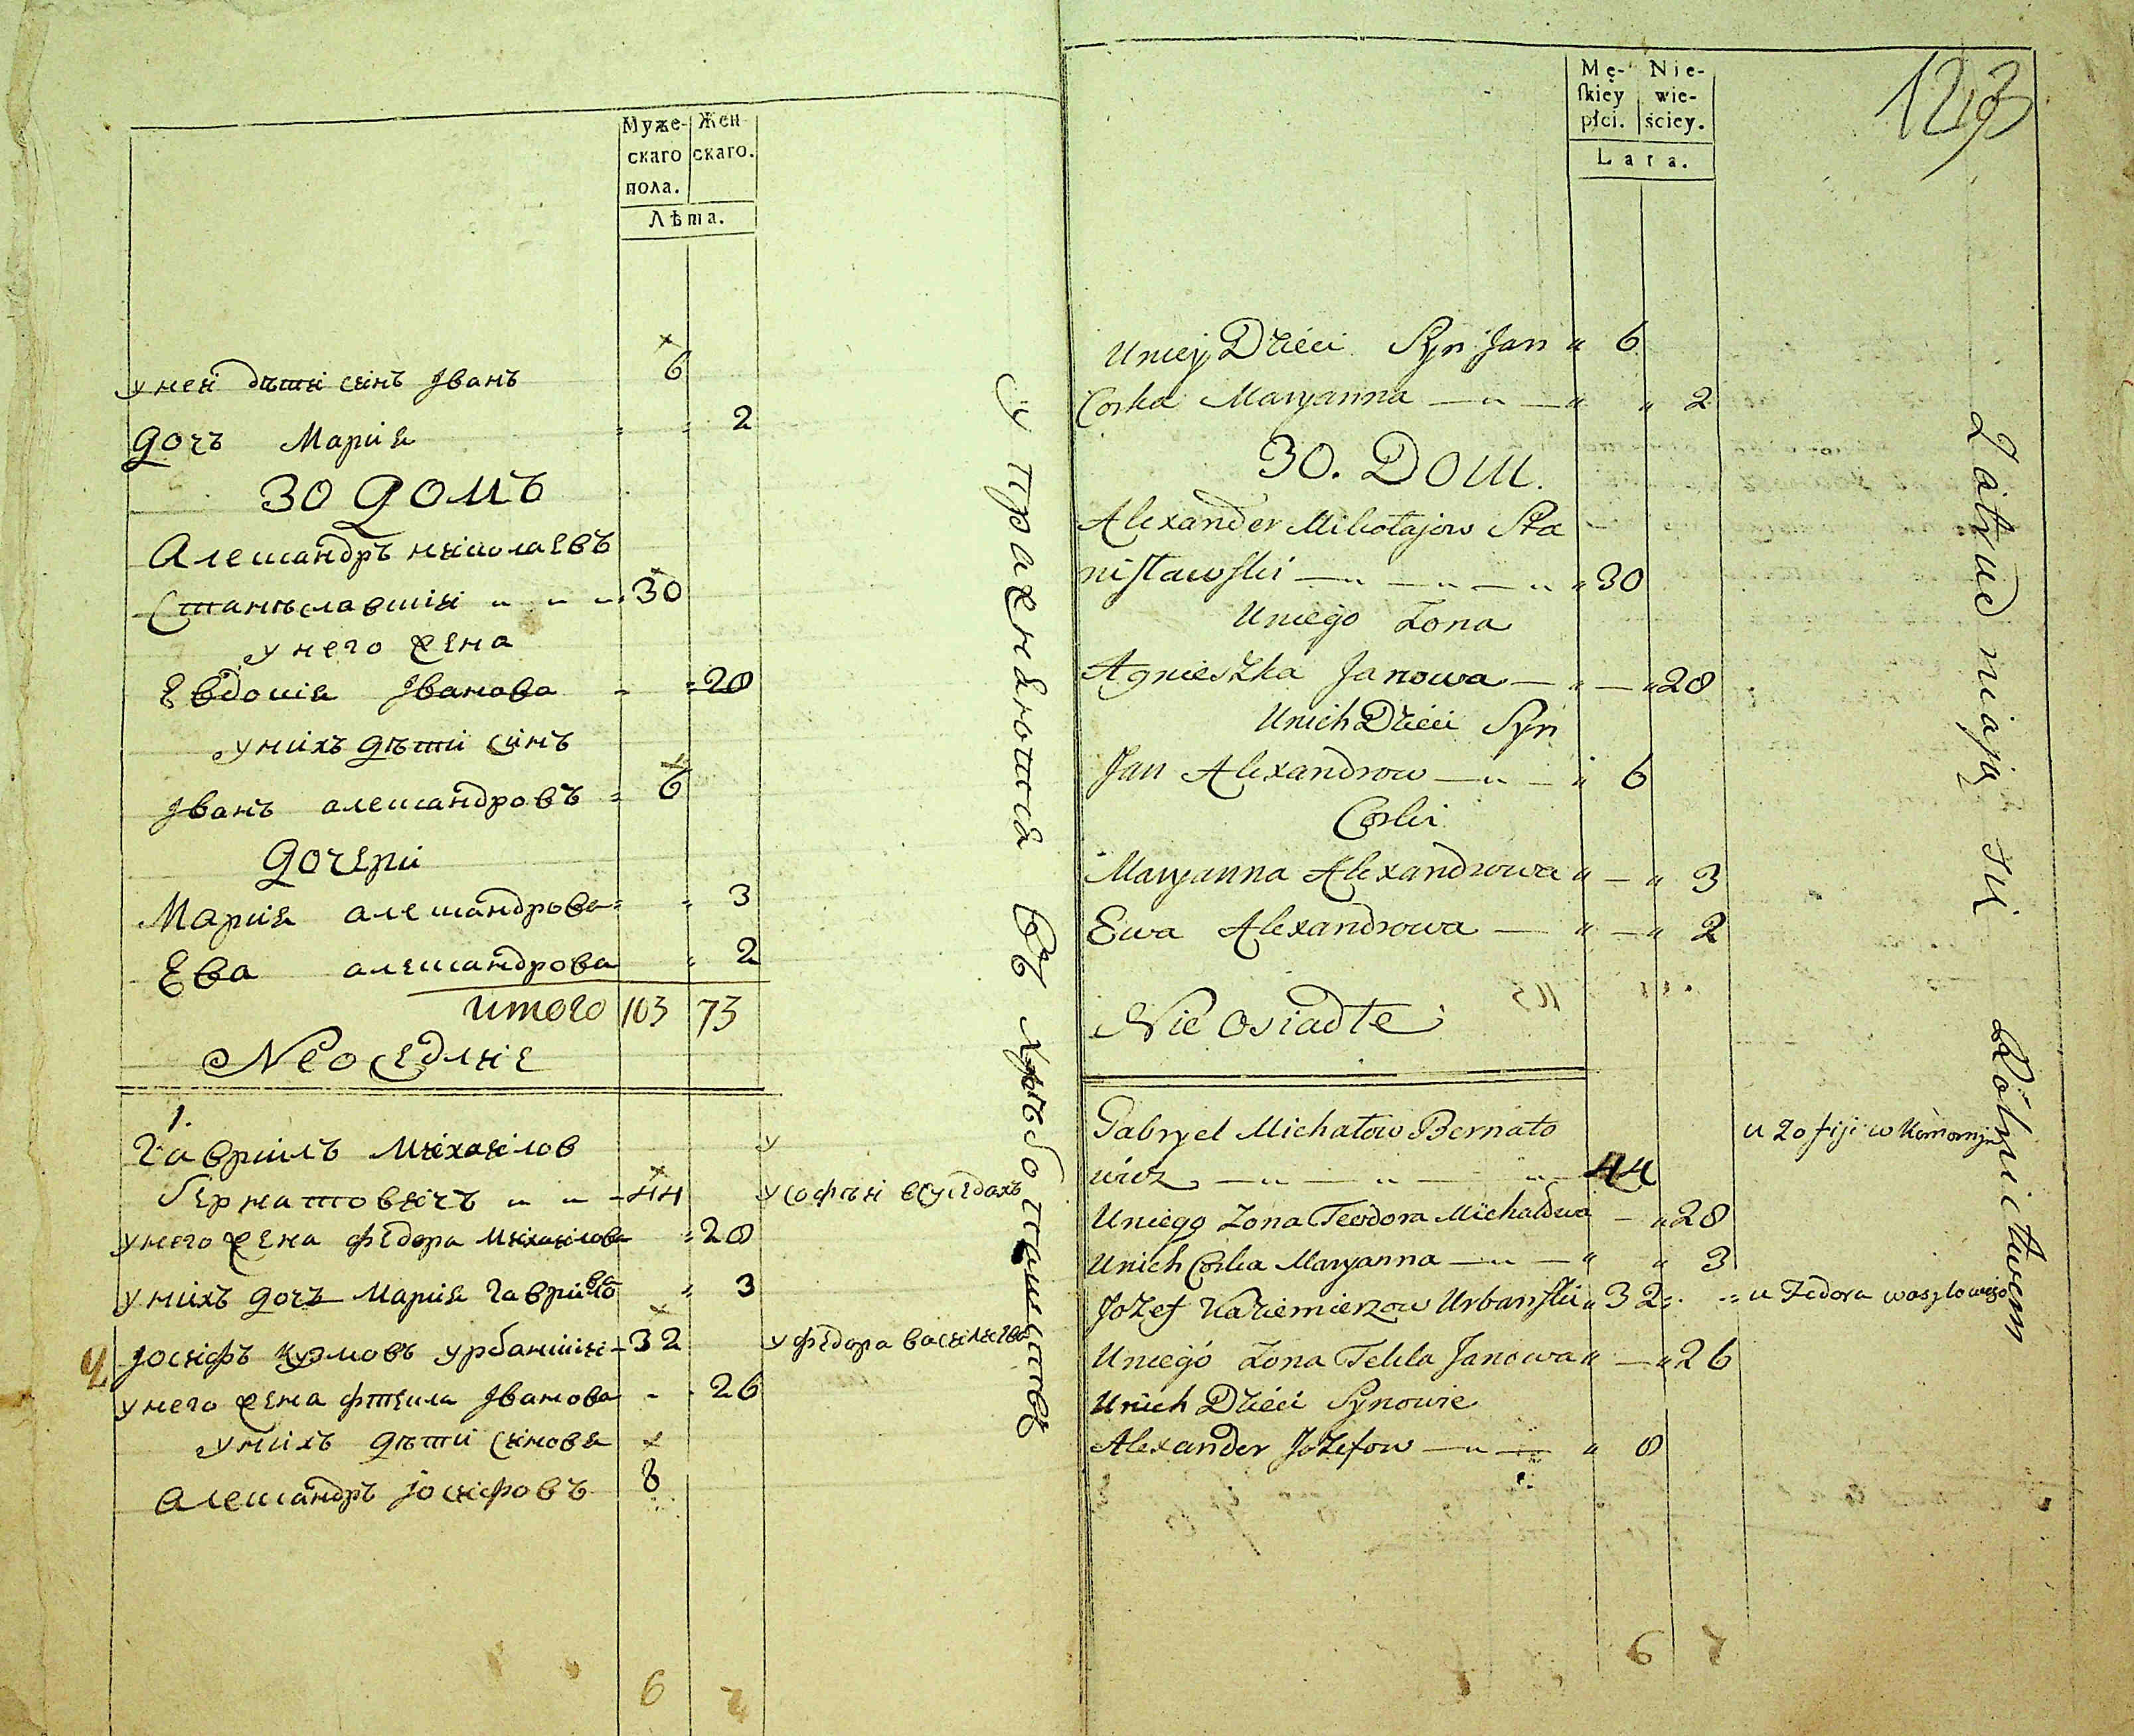 Муже- Жен
скаго скаго.
пола.
Лѣта.
у неи дѣти синъ Іванъ 6
дочъ Марія 2
30 домъ
Александръ николаевъ
Станиславскій 30
у него жена
Евдокія Іванова 28
у нихъ дѣти синъ
Іванъ александровъ 6
дочери
Марія александрова 3
Ева александрова 2
итого 103 73
Неоседлые
1.
Гаврилъ михаилов у
Бернатовичъ 44 у Софіи в суседахъ
у него жена федора михаилова 28
у нихъ дочъ Марія Гаврилова 3
2 Іосифъ кузмовъ урбанский 32 у федора васильева
у него жена фтекла Іванова 26
у нихъ дѣти синовя
Александръ Іосифовъ 8
6 7
упражняются въ хлѣбопашествѣ
123
Mę- Nie-
ſkiey wie-
płci. ściey.
Lata.
Uniey Dzieci Syn Jan 6
Corka Maryanna 2
30. Dom.
Alexander Mikołajow Sta
nisławski 30
Uniego Zona
Agnieszka Janowa 28
Unich Dzieci Syn
Jan Alexandrow 6
Corki
Maryanna Alexandrowa 3
Ewa Alexandrowa 2
Nie osiadłe
Gabryel Michałow Bernato u Zofiji w Komornym
wicz 44
Uniego Zona Teodora Michałowa 28
Unich Corka Maryanna 3
Jozef Kaziemierzow Urbanski 32 u Fedora wasylowego
Uniego Zona Tekla Janowa 26
Unich Dzieci Synowie
Alexander Jozefow 8
6 7
Zatrudniają się Rolnictwem